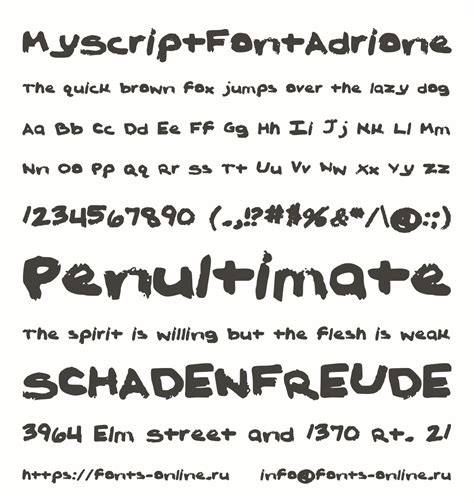 MyscriptFontAdrione
The quick brown fox jumps over the lazy dog
Aa Bb Cc Dd Ee Ff Gg Hh Ii Jj Kk Ll Mm
Nn Oo Pp Qq Rr Ss Tt Uu Vv Ww Xx Yy Zz
1234567890 (.,!?#$%&*/\@:;)
Penultimate
The spirit is willing but the flesh is weak
SCHADENFREUDE
3964 Elm street and 1370 Rt. 21
https://fonts-online.ru info@fonts-online.ru